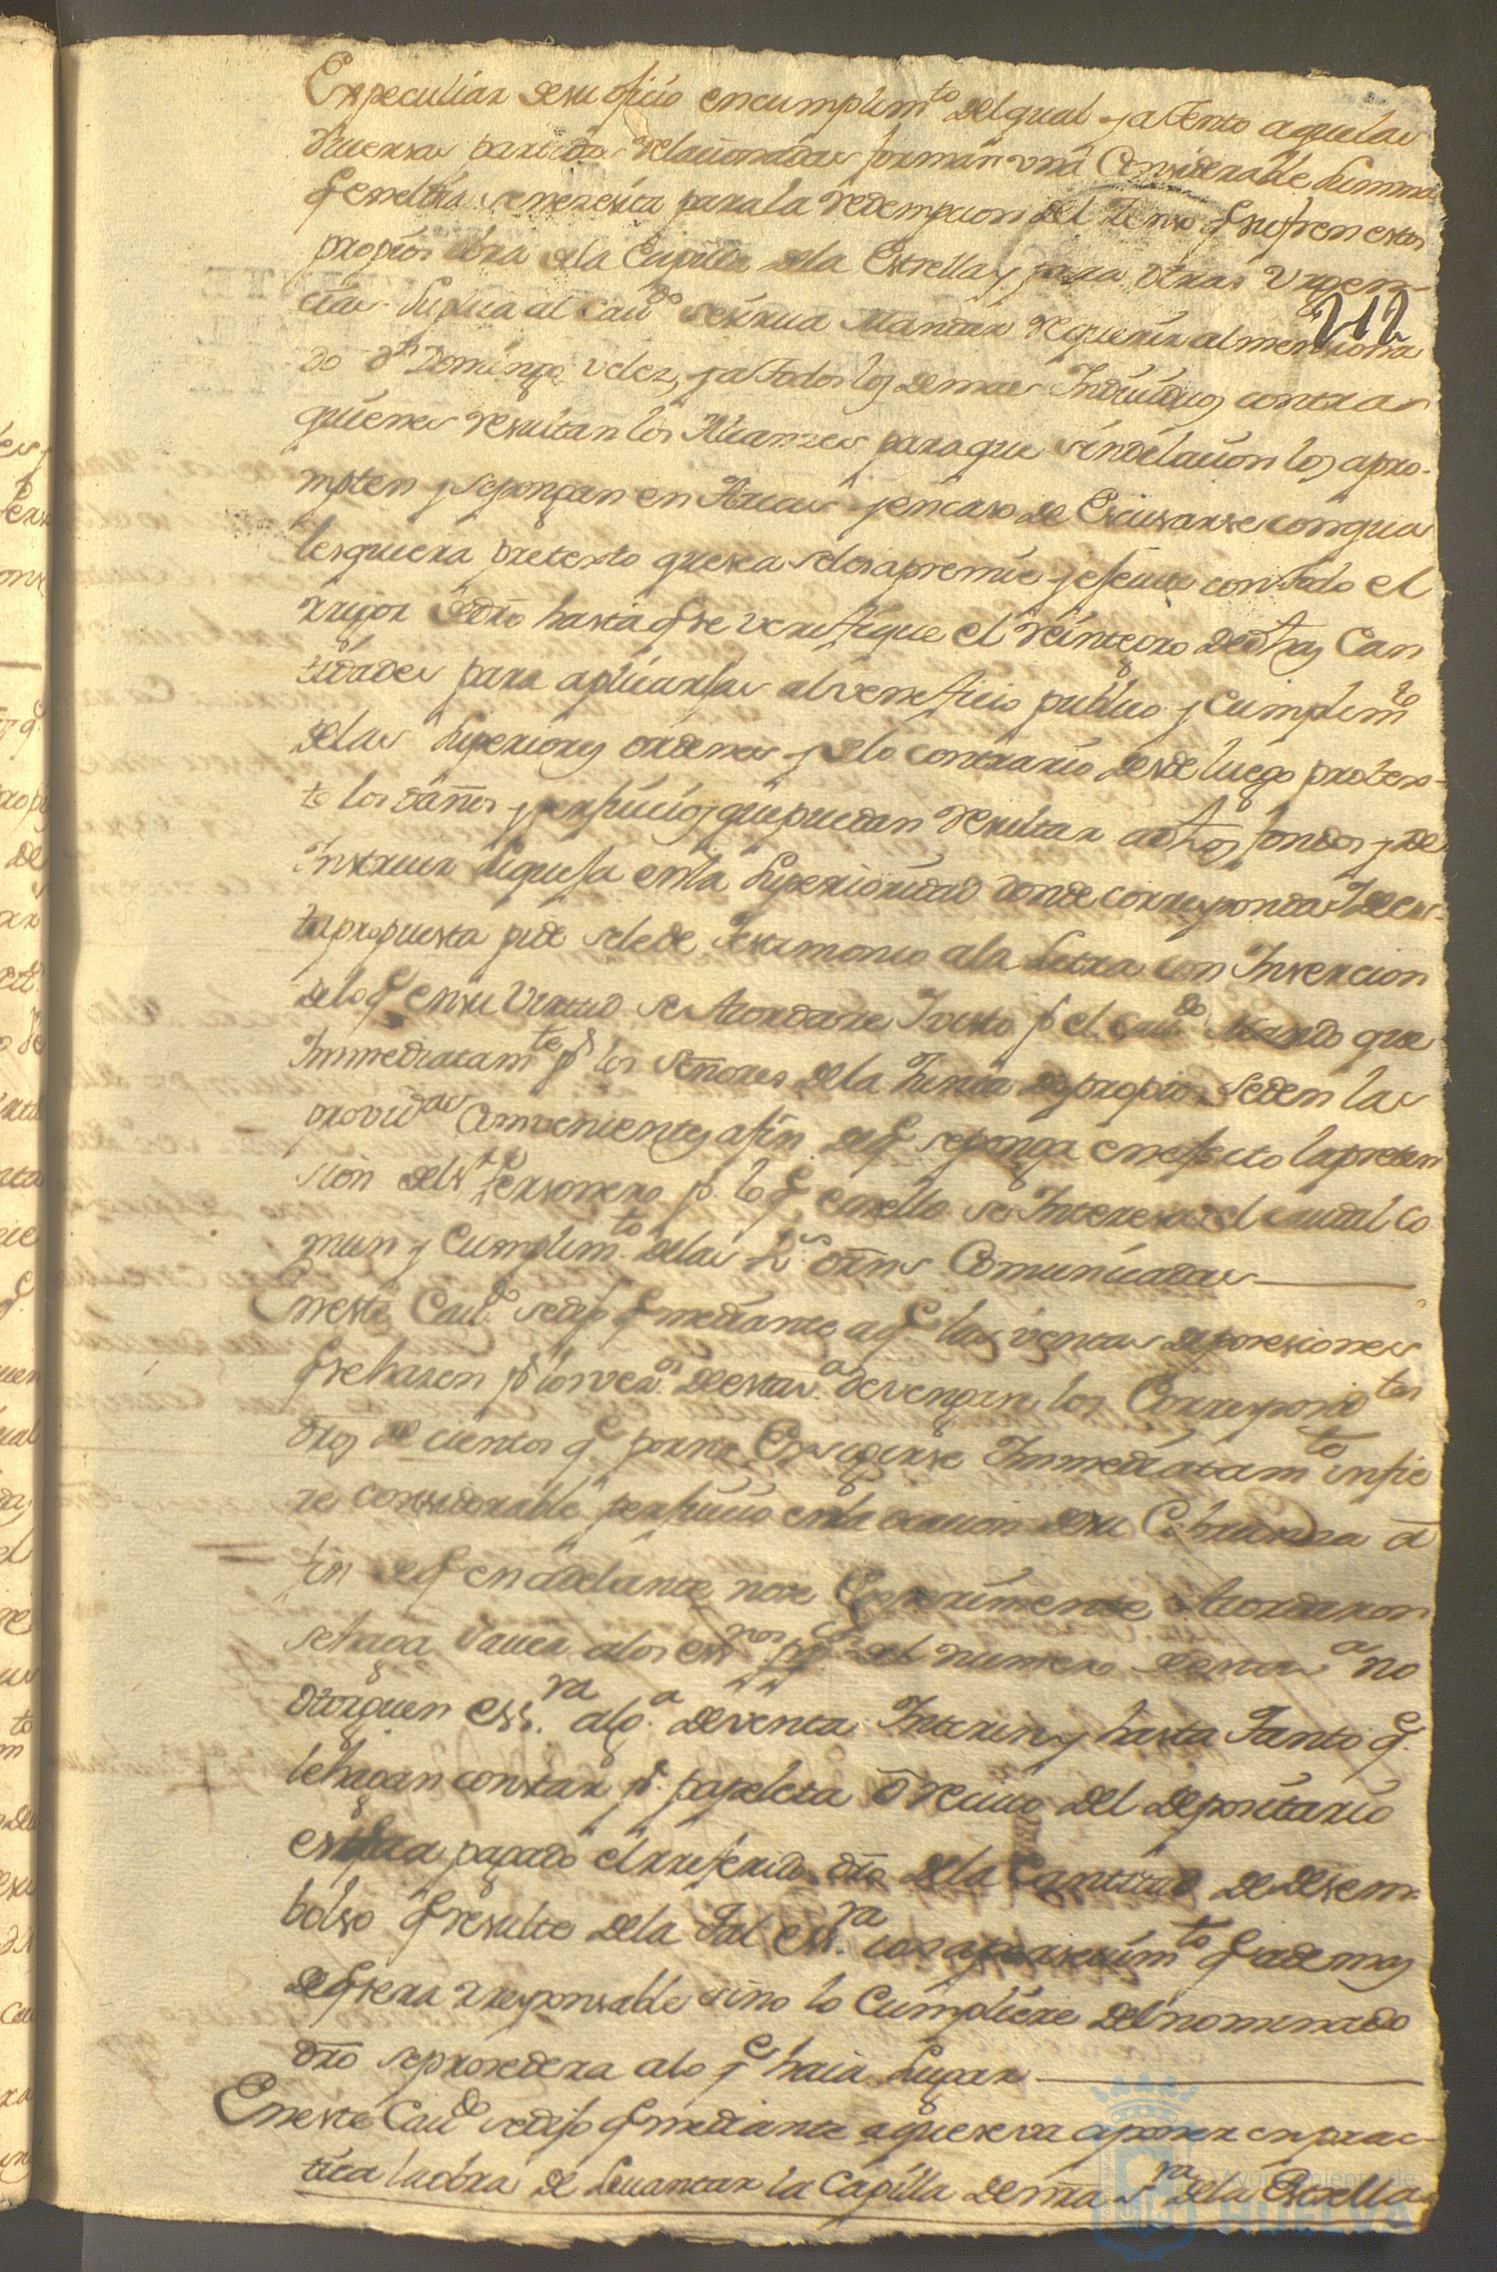 Es peculiar de su oficio en cumplim.to del qual y atento a que las
diversas partidas relacionadas forman una Considerable Summa
q.e en el dia se nezesita para la redempcion del Zenso q.e sufren estos
propios obra de la Capilla de la Estrella y para otras Urgen-
cias Suplica al Cav.do se sirva Mandar requerir al menciona
212
do d.n Domingo Velez, y a todos los demas Individuos contra
quienes resultan los Alcanzes para que sin dilacion los apro-
mpten y se pongan en Arcas y en caso de Escusarse con qua
lesquiera pretexto que sea se les apremie y execute con todo el
rrigor de dro hasta q.e se verifique el reintegro de dhas Can
tidades para aplicarlas al veneficio publico y Cumplim.to
de las Superiores ordenes y de lo contrario desde luego protes-
to los daños y perjuicios que puedan resultar a dhos fondos y de
Instruir la quexa en la Superioridad donde corresponda Y de es-
ta propuesta pide se le de Testimonio a la Letra con Insercion
de lo q.e en su Virttud se Acordase Y visto p.r el Cav.do Mando que
Immediatam.te p.r los Señores de la Junta de propios se den las
provid.as Combenientes a fin de q.e se ponga en efecto la preten
sion del s.r Personero p.r lo q.e en ello se Interesa el caudal Co
mun y Cumplim.to de las R.s orns Comunicadas
En este Cav.do se dijo q.e mediante a q.e las ventas de posesiones
q.e se hazen p.r los vez.os de esta v.a devengan los Correspond.tes
dros de cientos q.e por no Exsigirse Immediatam.te infie
re considerable perjuicio en la ocacion de su Cobranza a
fin de q.e en adelante no se Experimente Acordaron
se haga saver a los ess.nos pp.cos del numero de esta v.a no
otorguen ess.ra alg.a de venta Interin y hasta Tanto q.e
le hagan constar p.r papeleta o recivo del depositario
estar pagado el rreferido dro de la Cantidad de desem-
bolso q.e resulte de la tal ess.ra con apersevim.to q.e ademas
de q.e sera rresponsable si no lo Cumpliere del nominado
dro se prozedera a lo q.e haia Lugar
En este Cav.do se dijo q.e mediante a que se va a poner en prac-
tica la obra de Levantar la Capilla de nra s.ra de la Estrella
Ayuntamiento de
HUELVA